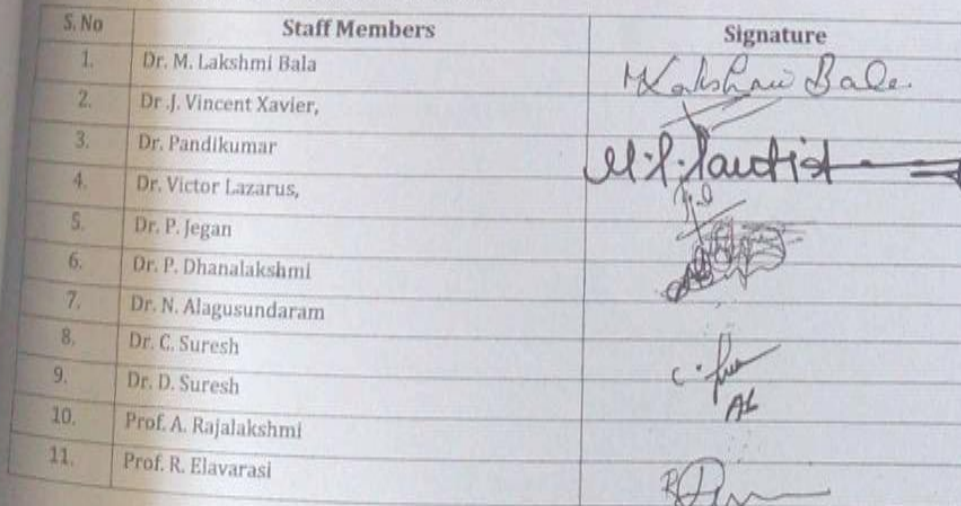 S. No Staff Members Signature
1. Dr. M. Lakshmi Bala M Lakshmi Bala.
2. Dr .J. Vincent Xavier,
3. Dr. Pandikumar
4. Dr. Victor Lazarus,
5. Dr. P. Jegan
6. Dr. P. Dhanalakshmi
7. Dr. N. Alagusundaram
8. Dr. C. Suresh
9. Dr. D. Suresh
10. Prof. A. Rajalakshmi
11. Prof. R. Elavarasi